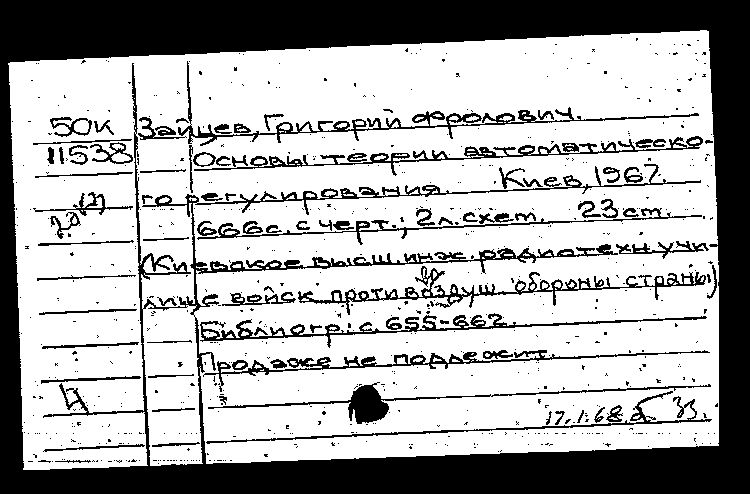 50К Зайцев, Григорий Фролович.
11538 Основы теории автоматическо-
го регулирования. Киев, 1967.
666с. с черт.; 2л. схем. 23 ст.
(Киевское высш. инж. радиотехн. учи-
лище войск противовоздуш. обороны страны)
Библиогр.: с. 655-662.
Продаже не подлежит.
17.1.68.